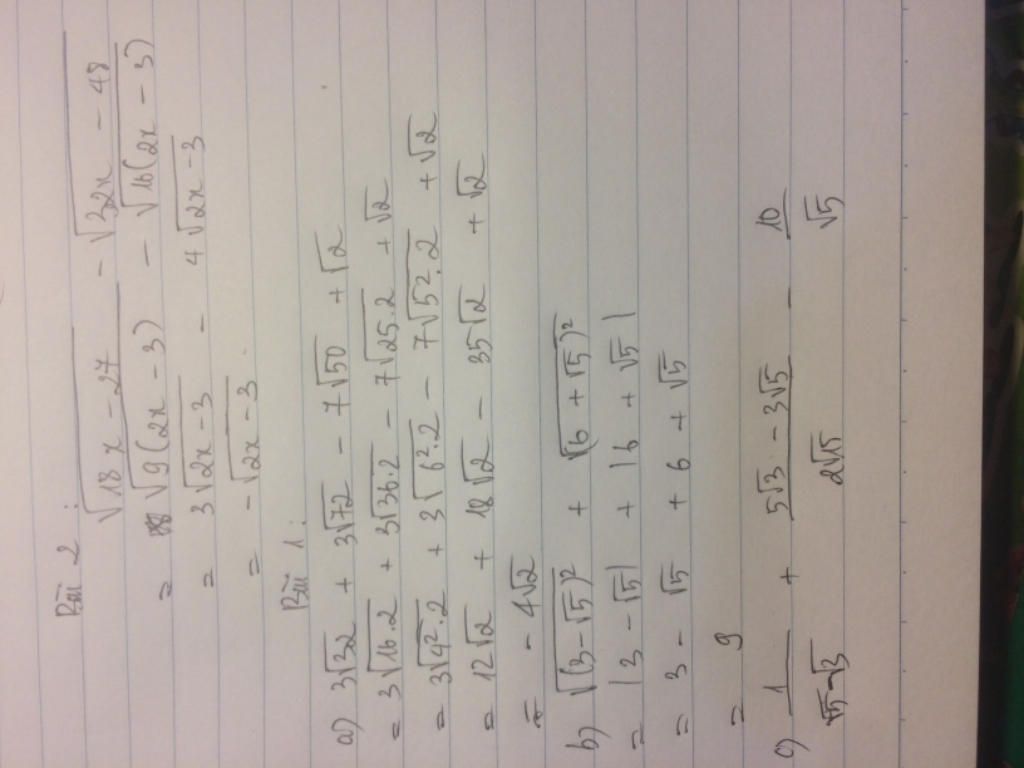 Bài 2:
√(18x - 27) - √(32x - 48)
= √(9(2x - 3)) - √(16(2x - 3))
= 3√(2x - 3) - 4√(2x - 3)
= -√(2x - 3)
Bài 1:
a) 3√32 + 3√72 - 7√50 + √2
= 3√(16.2) + 3√(36.2) - 7√(25.2) + √2
= 3√(4².2) + 3√(6².2) - 7√(5².2) + √2
= 12√2 + 18√2 - 35√2 + √2
= - 4√2
b) √(3 - √5)² + √(6 + √5)²
= |3 - √5| + |6 + √5|
= 3 - √5 + 6 + √5
= 9
c) 1/(√5 - √3) + (5√3 - 3√5)/(2√15) - 10/√5